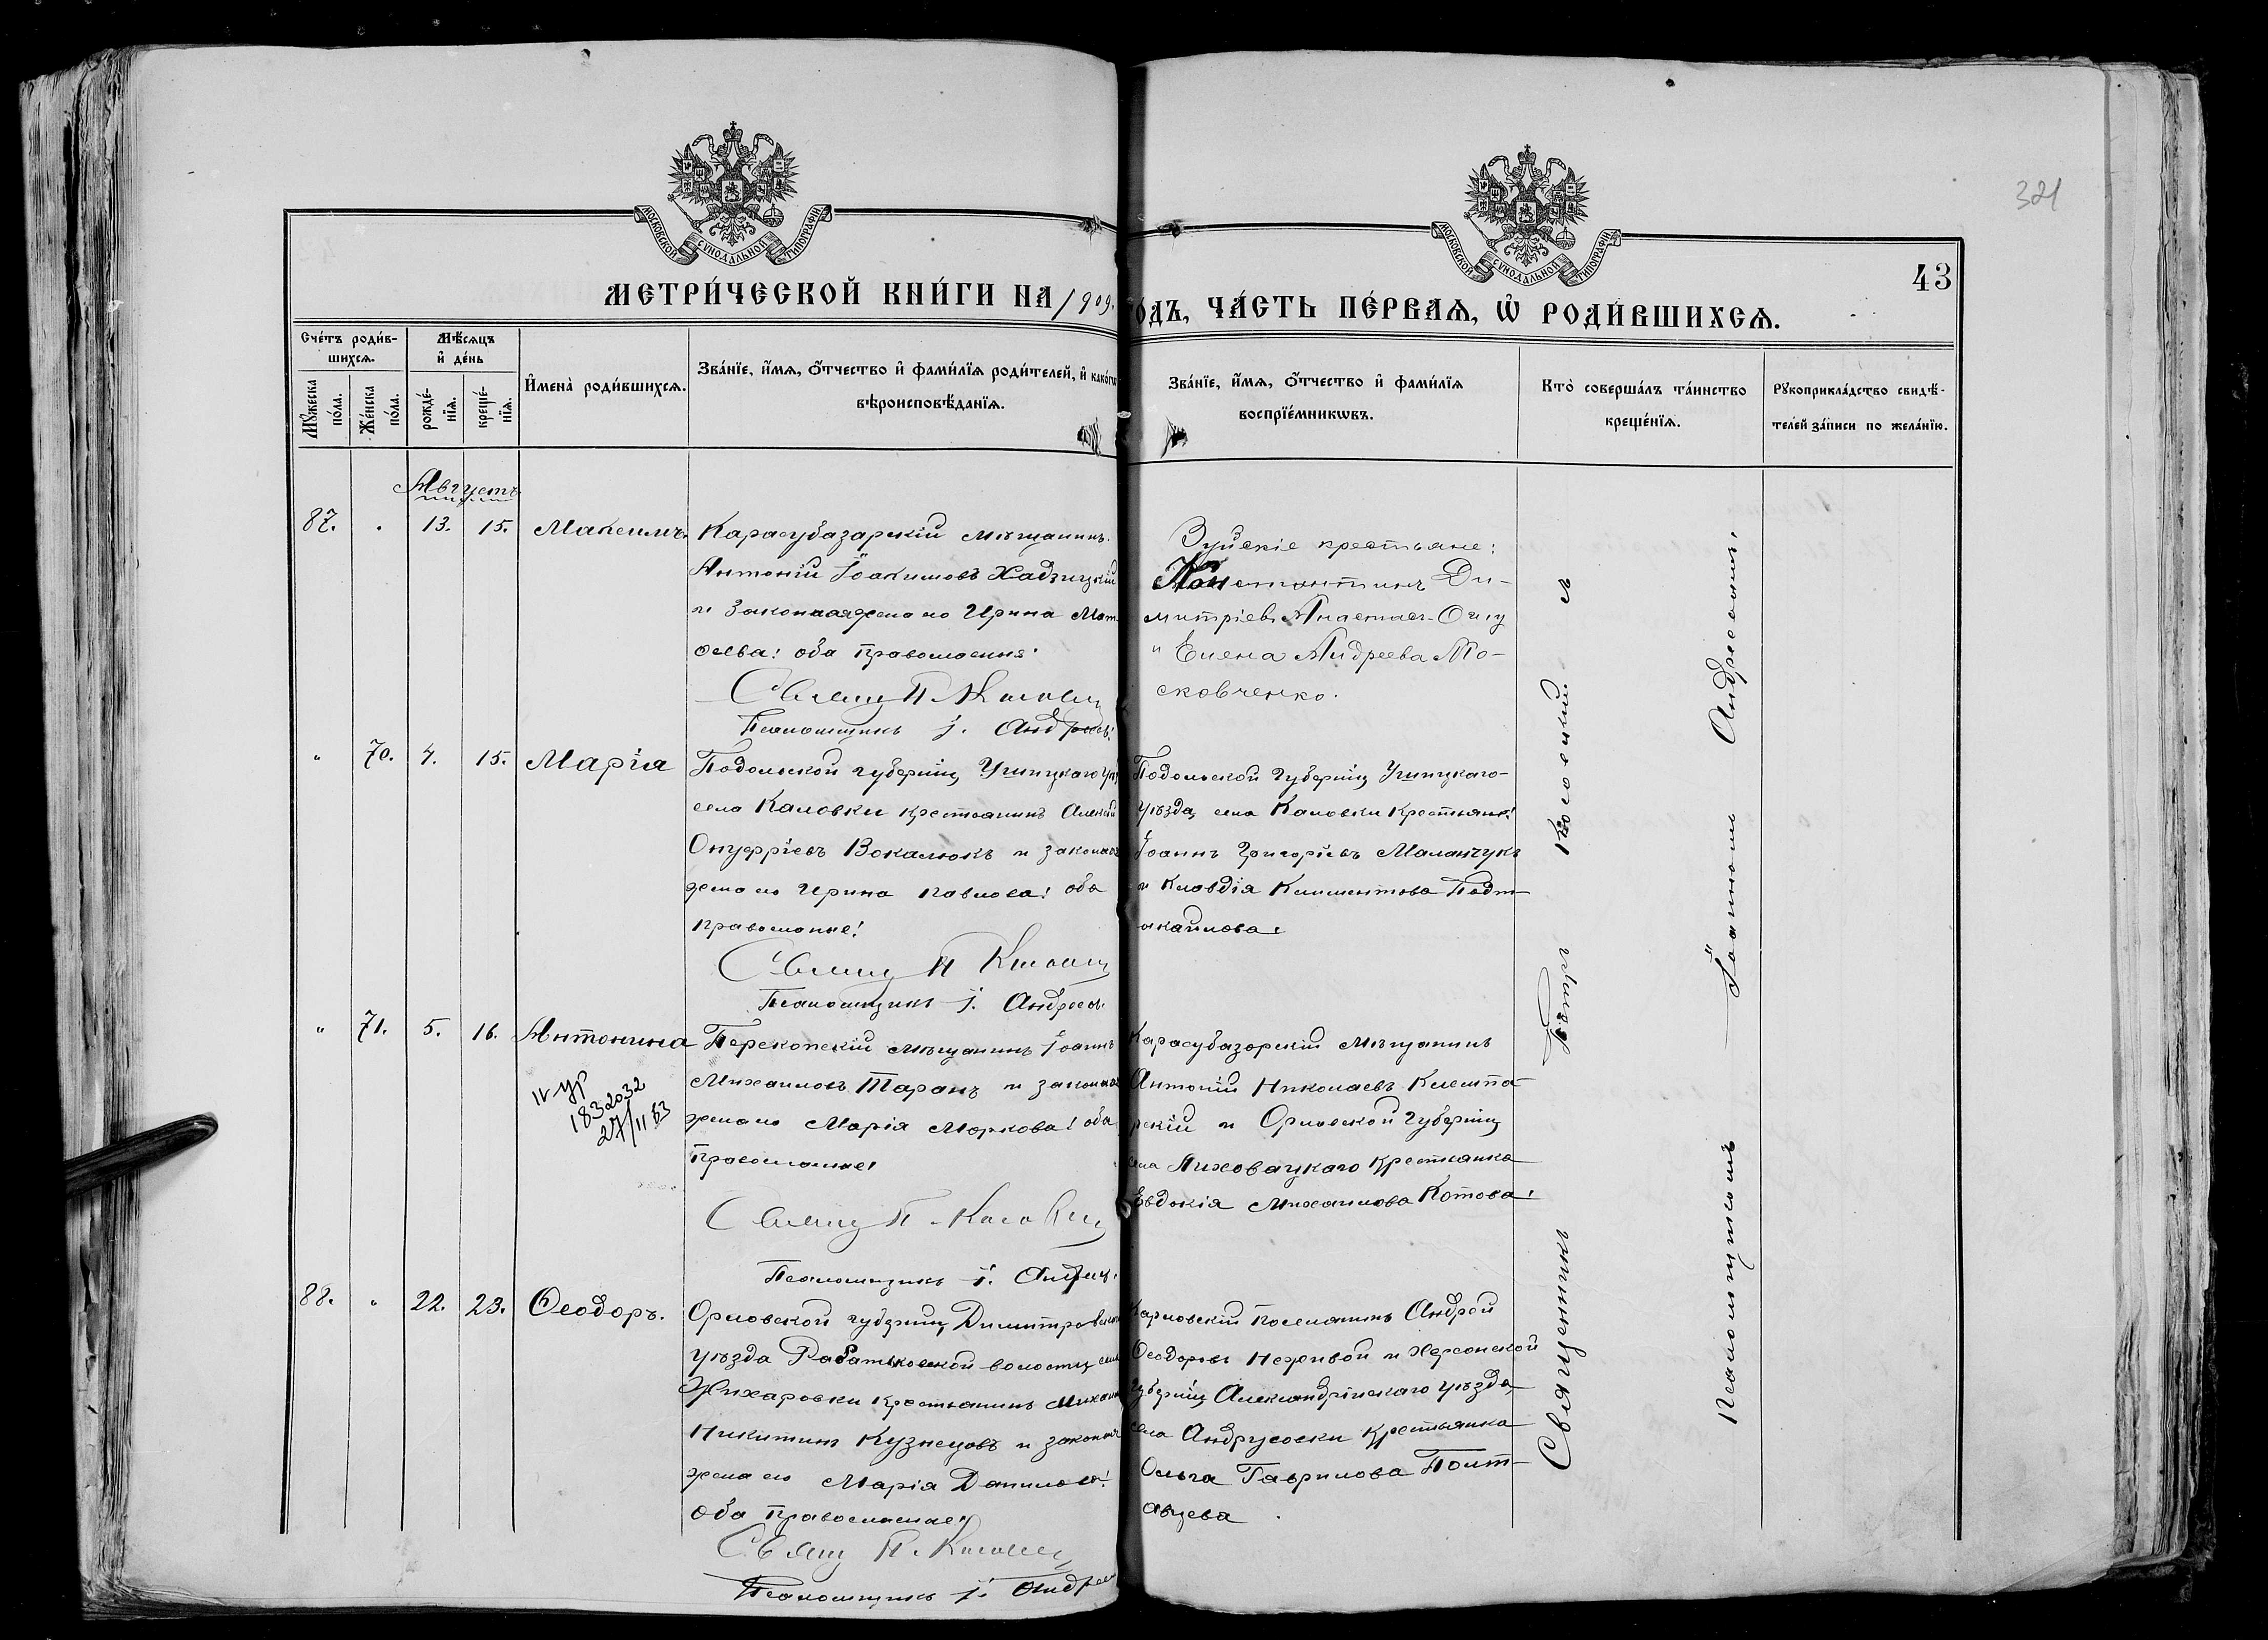 МОСКОВСКОЙ СУНОДАЛЬНОЙ ТИПОГРАФІИ
МОСКОВСКОЙ СУНОДАЛЬНОЙ ТИПОГРАФІИ
321
43
МЕТРИ́ЧЕСКОЙ КНИ́ГИ НА 1909.
ГО́ДЪ, ЧА́СТЬ ПЕ́РВАѦ, Ѡ҆ РОДИ́ВШИХСѦ.
Сче́тъ роди́в-
шихсѧ.
Мꙋ́жеска
по́ла.
Же́нска
по́ла.
Мѣ́сѧцъ
и҆ де́нь
рожде́-
нїѧ.
креще́-
нїѧ.
И҆мена̀ роди́вшихсѧ.
Зва́нїе, и҆́мѧ, ѻ҆́тчество и҆ фами́лїѧ роди́телей, и҆ како́гѡ
вѣроисповѣ́данїѧ.
Зва́нїе, и҆́мѧ, ѻ҆́тчество и҆ фами́лїѧ
воспрїе́мникѡвъ.
Кто̀ соверша́лъ та́инство
креще́нїѧ.
Рꙋкоприкла́дство свидѣ́-
телей за́писи по жела́нїю.
Августъ
87. " 13. 15. Максимъ.
Карасубазарскій мѣщанинъ
Антоній Іоакимовъ Хадзицкій
и законная жена его Ирина Мат
ѳеева: оба православные.
Священ П. Косовск
Псаломщикъ І. Андреевъ.
Зуйскіе крестьяне:
Константинъ Ди-
митріевъ Анастас-Оглу
и Елена Андреева Мо-
сковченко.
" 70. 4. 15. Марія
Подольской губерніи Ушицкаго уѣз
села Каловки крестьянинъ Алексій
Онуфріевъ Вокалюкъ и законная
жена его Ирина Павлова: оба
православные!
Священ П Косовск
Псаломщикъ І. Андреевъ
Подольской губерніи Ушицкаго
уѣзда, села Каловки крестьяне:
Іоаннъ Григоріевъ Маланчукъ
и Клавдія Климентова Подм
ихайлова.
" 71. 5. 16. Антонина
IV УР
1832032
27/11 63
Перекопскій мѣщанинъ Іоаннъ
Михаиловъ Таранъ и законная
жена его Марія Маркова: оба
православные!
Священ П. Косовск
Псаломщикъ І. Андреев
Карасубазарскій мѣщанинъ
Антоній Николаевъ Клемпа-
рскій и Орловской губерніи
села Лиховацкаго крестьянка
Евдокія Михаилова Котова!
88. " 22. 23. Ѳеодоръ.
Орловской губерніи, Димитровскаго
уѣзда волости села
Жихаровки крестьянинъ Михаилъ
Никитинъ Кузнецовъ и законная
жена его Марія Данилова!
оба православные!
Свящ П. Косовск
Псаломщикъ І. Андреев
Карловскій поселянинъ Андрей
Ѳеодоровъ Неживой и Херсонской
губерніи Александрійскаго уѣзда,
села Андрусовки крестьянка
Ольга Гаврилова Полт-
авцева
Священникъ Петръ Косовскій съ
Псаломщикомъ Іоанномъ Андреевымъ.